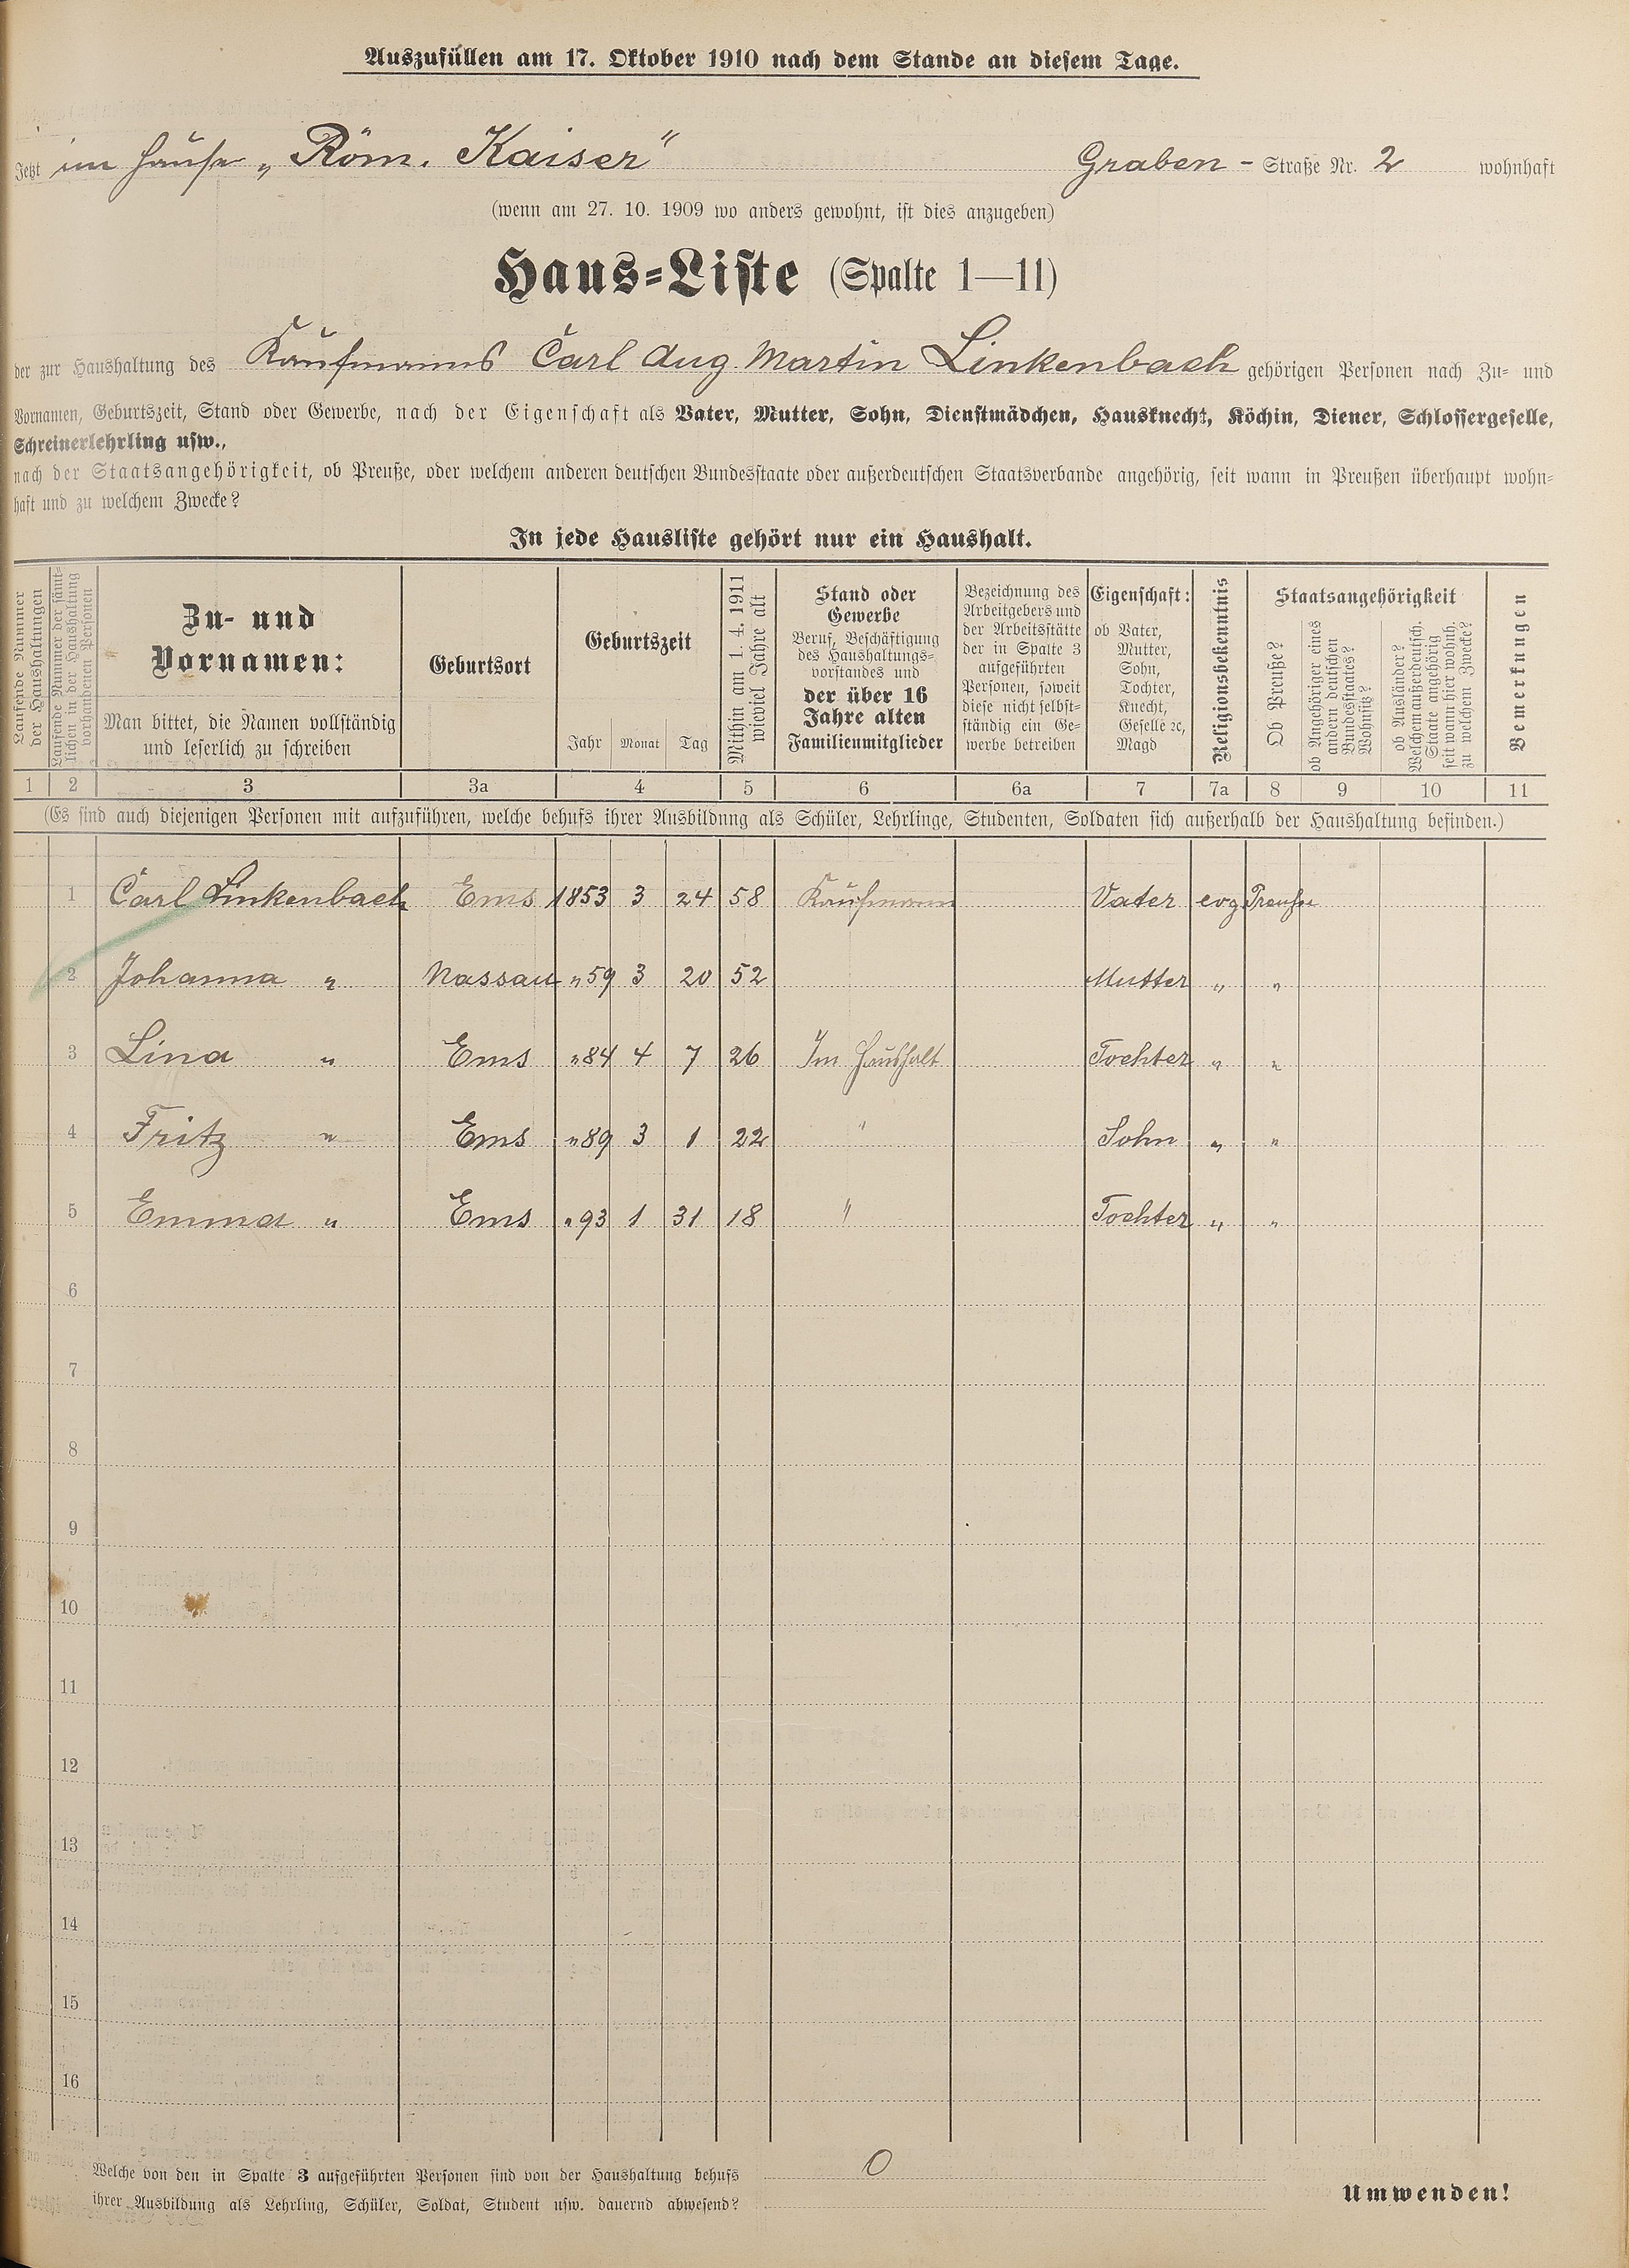 Auszufüllen am 17. Oktober 1910 nach dem Stande an diesem Tage.
Jetzt im Hause „Röm. Kaiser“ Graben - Straße Nr. 2 wohnhaft
(wenn am 27. 10. 1909 wo anders gewohnt, ist dies anzugeben)
Haus-Liste (Spalte 1—11)
der zur Haushaltung des Kaufmanns Carl Aug. Martin Linkenbach gehörigen Personen nach Zu- und
Vornamen, Geburtszeit, Stand oder Gewerbe, nach der Eigenschaft als Vater, Mutter, Sohn, Dienstmädchen, Hausknecht, Köchin, Diener, Schlossergeselle,
Schreinerlehrling usw.,
nach der Staatsangehörigkeit, ob Preuße, oder welchem anderen deutschen Bundesstaate oder außerdeutschen Staatsverbande angehörig, seit wann in Preußen überhaupt wohn-
haft und zu welchem Zwecke?
In jede Hausliste gehört nur ein Haushalt.
Laufende Nummer
der Haushaltungen
Laufende Nummer der sämt-
lichen in der Haushaltung
vorhandenen Personen
Zu- und
Vornamen:
Man bittet, die Namen vollständig
und leserlich zu schreiben
Geburtsort
Geburtszeit
Jahr Monat Tag
Mithin am 1. 4. 1911
wieviel Jahre alt
Stand oder
Gewerbe
Beruf, Beschäftigung
des Haushaltungs-
vorstandes und
der über 16
Jahre alten
Familienmitglieder
Bezeichnung des
Arbeitgebers und
der Arbeitsstätte
der in Spalte 3
aufgeführten
Personen, soweit
diese nicht selbst-
ständig ein Ge-
werbe betreiben
Eigenschaft:
ob Vater,
Mutter,
Sohn,
Tochter,
Knecht,
Geselle ꝛc,
Magd
Religionsbekenntnis
Staatsangehörigkeit
Ob Preuße?
ob Angehöriger eines
andern deutschen
Bundesstaates?
Wohnsitz?
ob Ausländer?
Welchem außerdeutsch.
Staate angehörig
seit wann hier wohnh.
zu welchem Zwecke?
Bemerkungen
1 2 3 3a 4 5 6 6a 7 7a 8 9 10 11
(Es sind auch diejenigen Personen mit aufzuführen, welche behufs ihrer Ausbildung als Schüler, Lehrlinge, Studenten, Soldaten sich außerhalb der Haushaltung befinden.)
1 Carl Linkenbach Ems 1853 3 24 58 Kaufmann Vater evg Preuße
2 Johanna " Nassau "59 3 20 52 Mutter " "
3 Lina " Ems "84 4 7 26 Im Haushalt Tochter " "
4 Fritz " Ems "89 3 1 22 " Sohn " "
5 Emma " Ems "93 1 31 18 " Tochter " "
6
7
8
9
10
11
12
13
14
15
16
Welche von den in Spalte 3 aufgeführten Personen sind von der Haushaltung behufs
ihrer Ausbildung als Lehrling, Schüler, Soldat, Student usw. dauernd abwesend?
0
Umwenden!